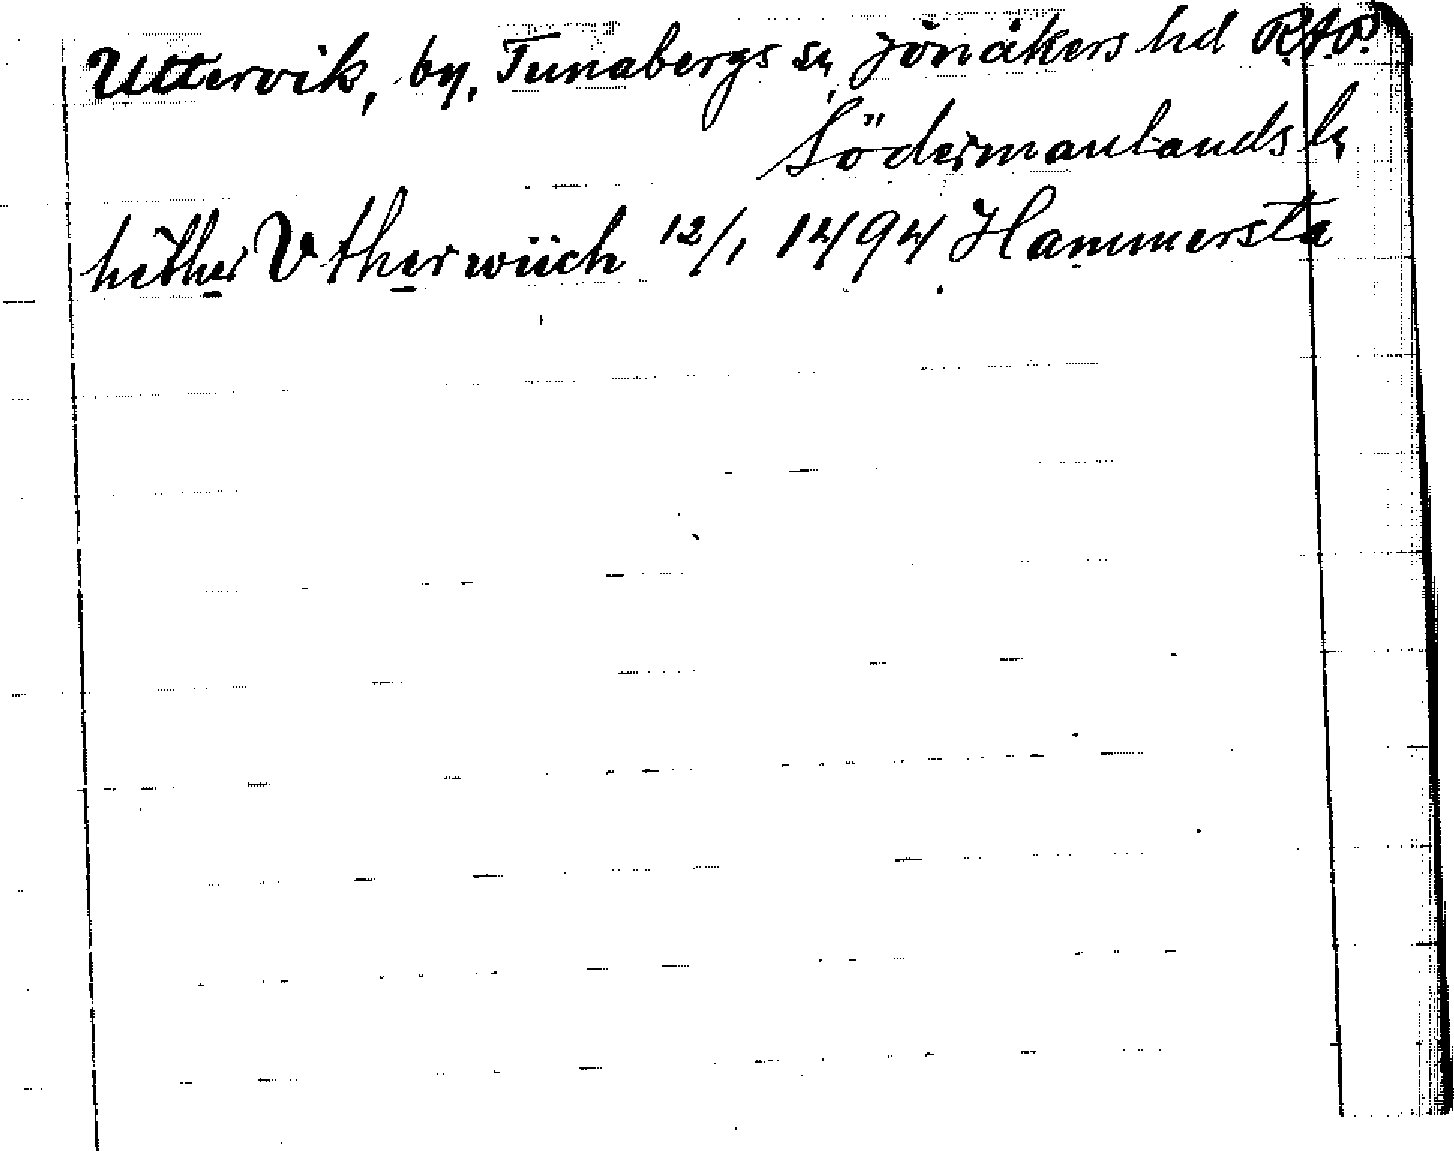 Uttervik, by, Tunabergs sn, Jönåkers hd RAp.
Södermanlands ln
hether Vtherwiich 12/1 1494 Hammersta